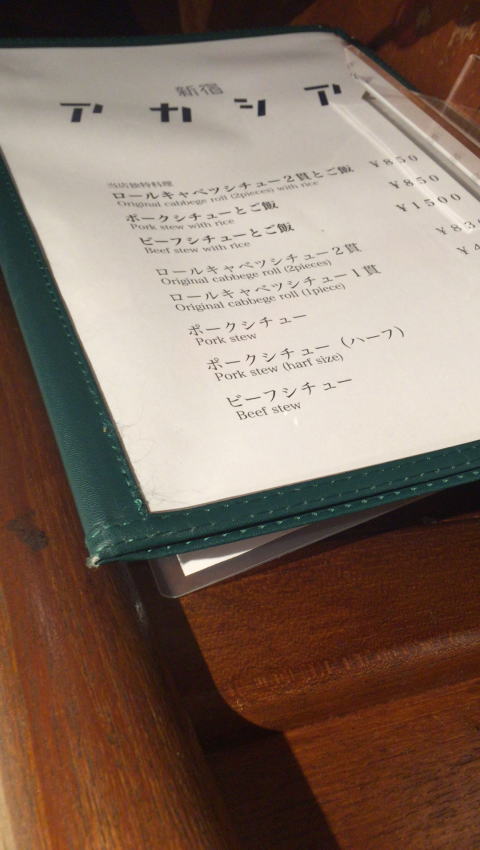 新宿
アカシア
当店独特料理
ロールキャベツシチュー2貫とご飯 ¥850
Original cabbege roll (2pieces) with rice
ポークシチューとご飯 ¥850
Pork stew with rice
ビーフシチューとご飯 ¥1500
Beef stew with rice
ロールキャベツシチュー2貫
Original cabbege roll (2pieces)
ロールキャベツシチュー1貫
Original cabbege roll (1piece)
ポークシチュー
Pork stew
ポークシチュー（ハーフ）
Pork stew (harf size)
ビーフシチュー
Beef stew